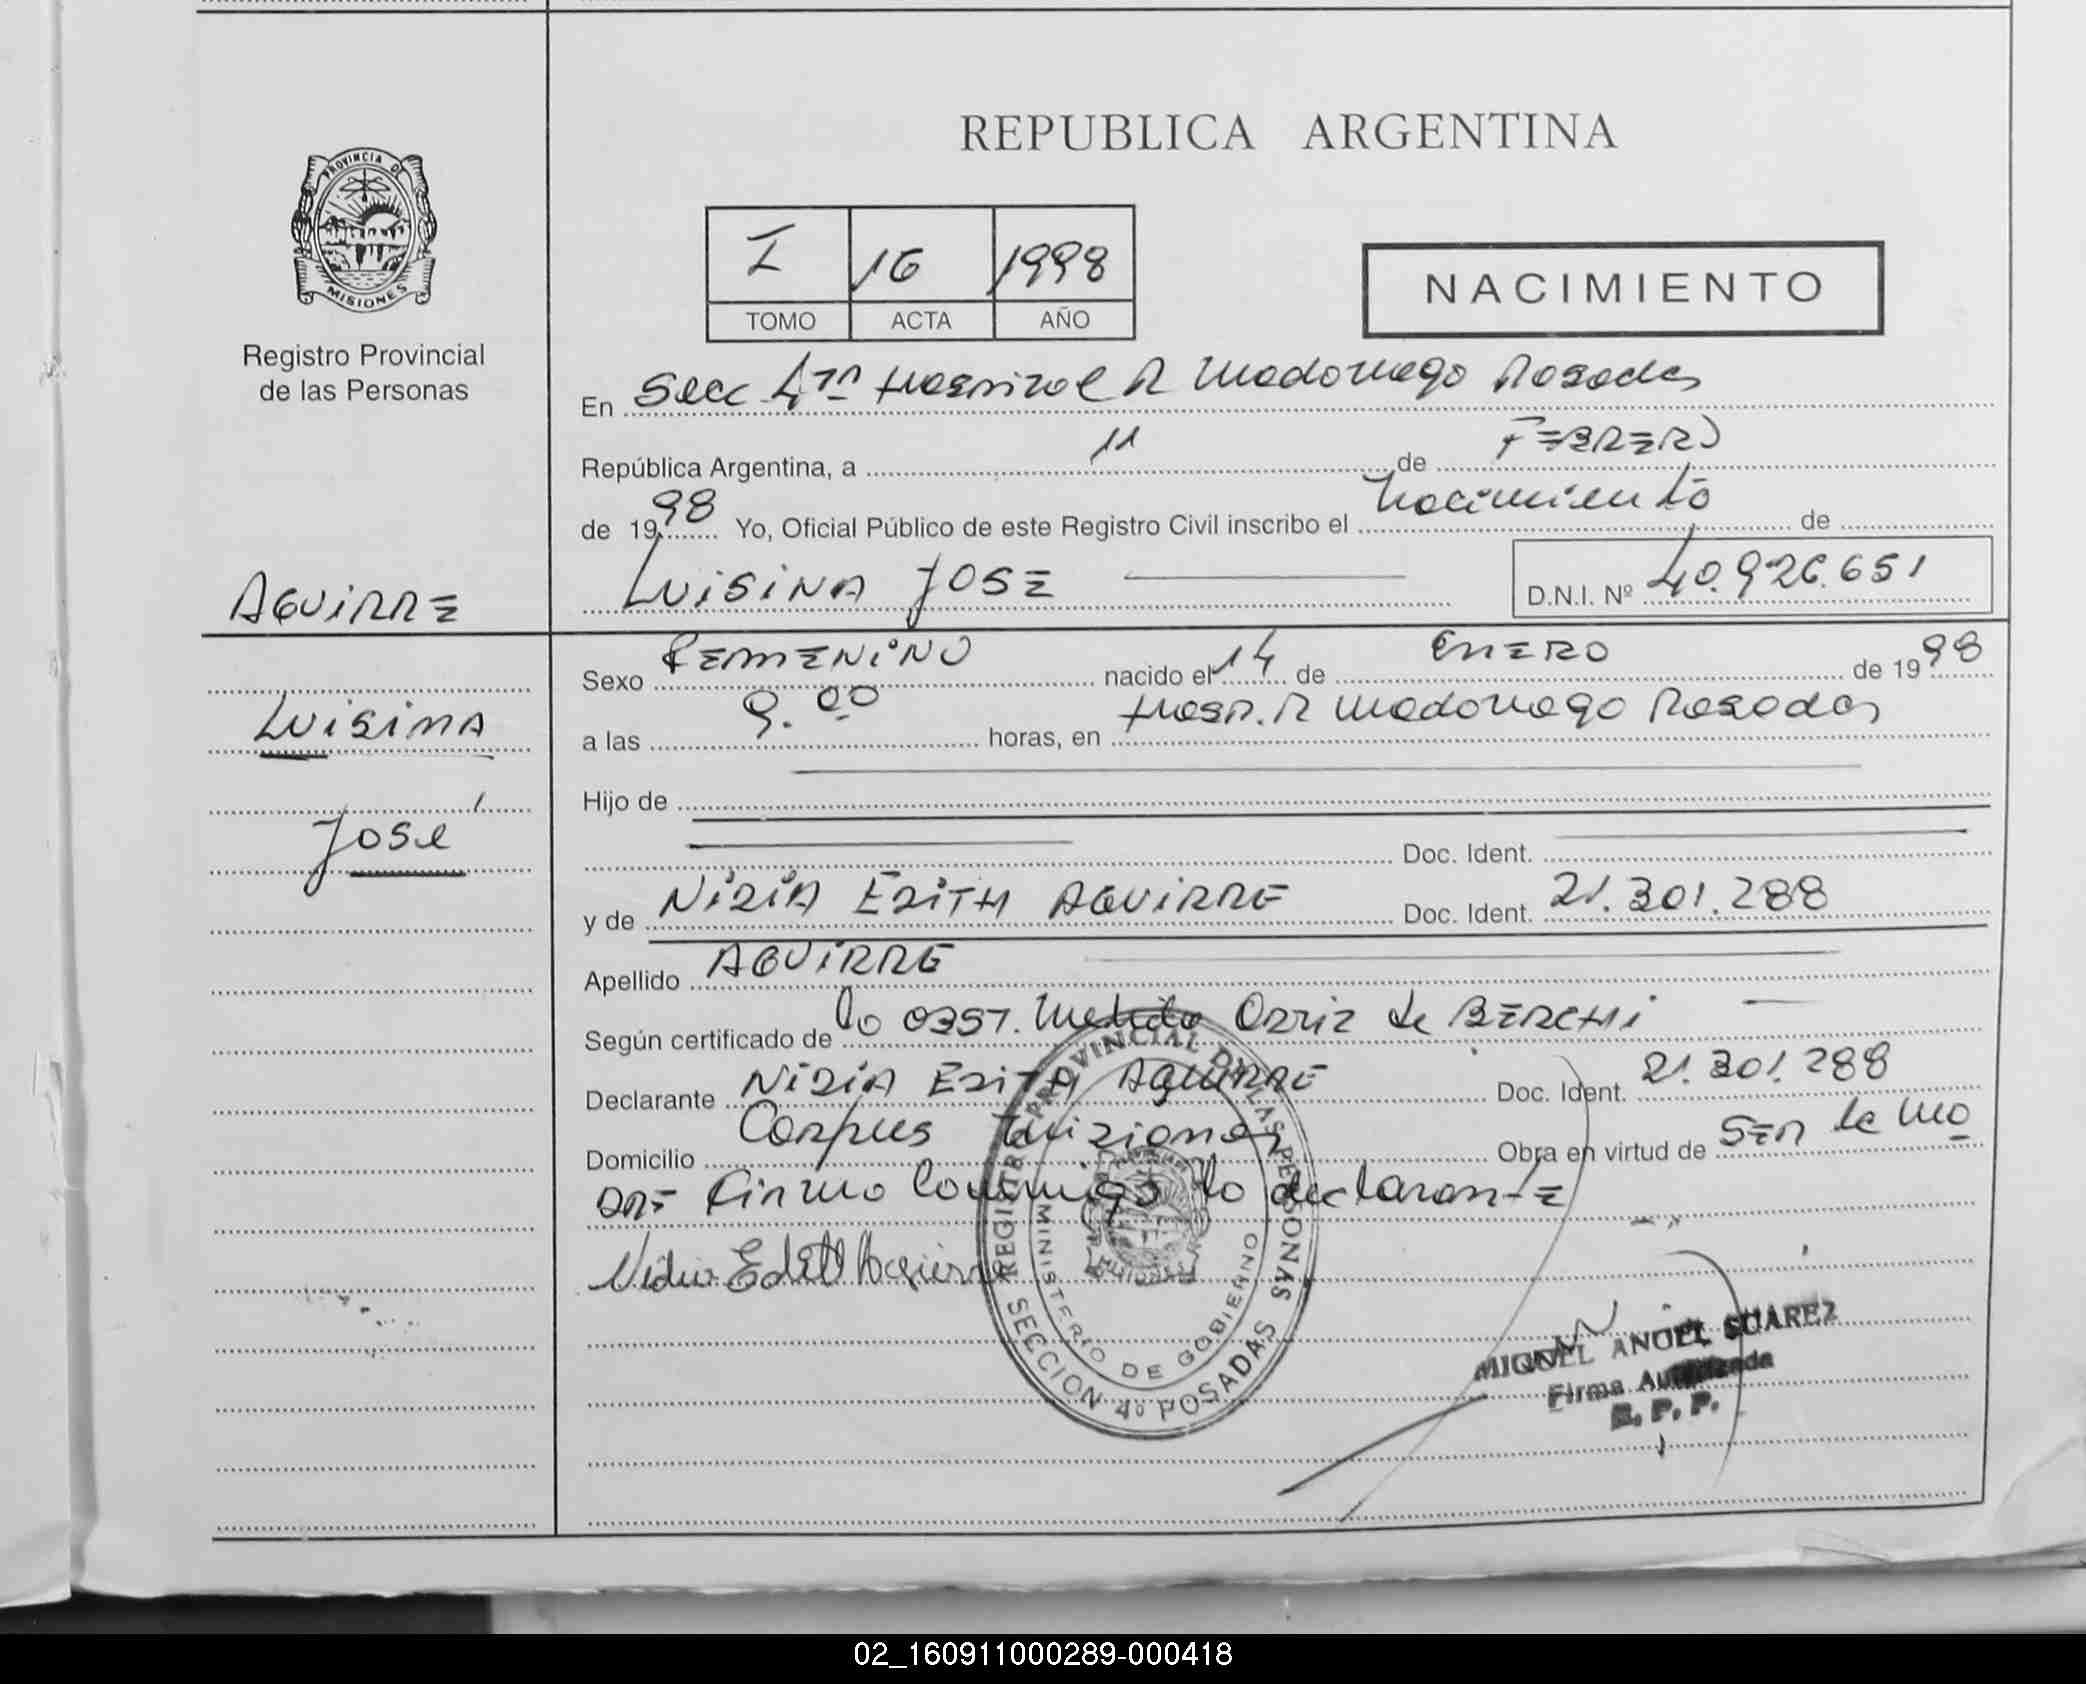 REPUBLICA ARGENTINA
PROVINCIA DE
MISIONES
Registro Provincial
de las Personas
I 16 1998
TOMO ACTA AÑO
NACIMIENTO
En Secc 4ta Hospital R Madariaga Posadas
República Argentina, a 11 de FEBRERO
de 1998 Yo, Oficial Público de este Registro Civil inscribo el Nacimiento de
AGUIRRE
LUISINA JOSE
D.N.I. Nº 40.926.651
Sexo FEMENINO nacido el 14 de ENERO de 1998
LUISINA
a las 9.00 horas, en Hosp. R Madariaga Posadas
Hijo de
José
Doc. Ident.
y de NIDIA EDITH AGUIRRE Doc. Ident. 21.301.288
Apellido AGUIRRE
Según certificado de la OBST. Ortiz de BERCHI
Declarante NIDIA EDITH AGUIRRE Doc. Ident. 21.301.288
Domicilio Corpus Misiones Obra en virtud de SER la Ma
DRE Firma Conmigo la declarante
Nidia Edith Aguirre
REGISTRO PROVINCIAL DE LAS PERSONAS
MINISTERIO DE GOBIERNO
SECCION 4º POSADAS
MIGUEL ANGEL SUAREZ
Firma Autorizada
R. P. P.
02_160911000289-000418